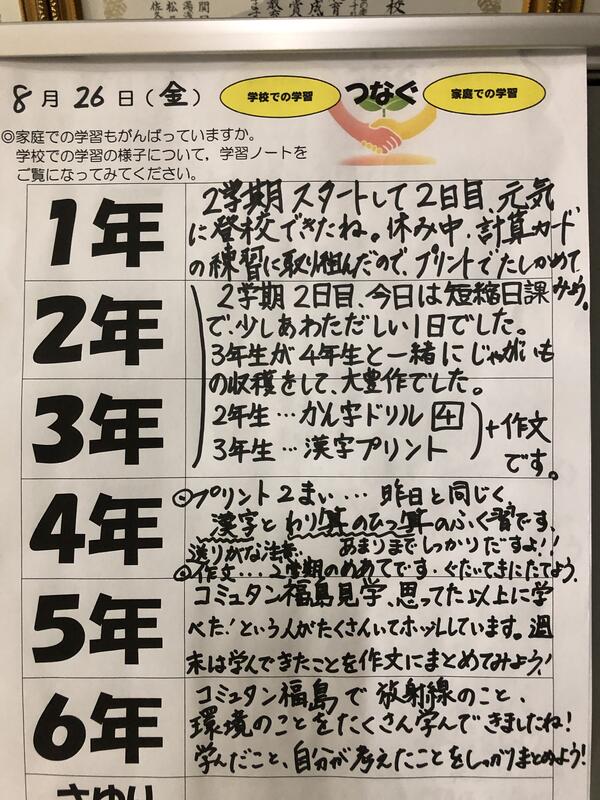 8月26日(金)
学校での学習
つなぐ
家庭での学習
◎家庭での学習もがんばっていますか。
学校での学習の様子について，学習ノートを
ご覧になってみてください。
1年
2学期スタートして2日目、元気
に登校できたね。休み中、計算カード
の練習に取り組んだので、プリントでたしかめて
みよう。
2年
2学期2日目、今日は短縮日課
で、少しあわただしい1日でした。
3年生が4年生と一緒にじゃがいも
の収穫をして、大豊作でした。
3年
2年生…かん字ドリル4
3年生…漢字プリント
+作文
です。
4年
◎プリント2まい…昨日と同じく、
漢字とわり算のひっ算のふく習です、
送りがな注意 あまりまでしっかりだすよ!!
◎作文…2学期のめあてです・ぐたいてきにたてよう。
5年
コミュタン福島見学、思ってた以上に学
べた!という人がたくさんいてホッとしています。週
末は学んできたことを作文にまとめてみよう!
6年
コミュタン福島で放射線のこと、
環境のことをたくさん学んできましたね!
学んだこと、自分が考えたことをしっかりまとめよう!
さゆり